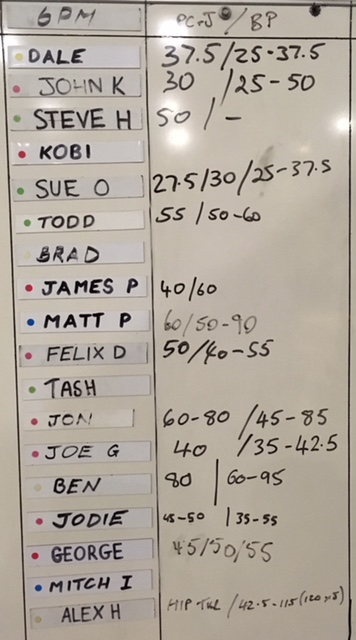 6PM PC+J / BP
DALE 37.5/25-37.5
JOHN K 30 /25-50
STEVE H 50 / -
KOBI
SUE O 27.5/30/25-37.5
TODD 55 /50-60
BRAD
JAMES P 40/60
MATT P 60/50-90
FELIX D 50/40-55
TASH
JON 60-80 /45-85
JOE G 40 /35-42.5
BEN 80 | 60-95
JODIE 45-50 | 35-55
GEORGE 45/50/55
MITCH I
ALEX H HIP / 42.5-115